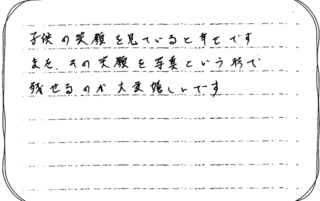 子供の笑顔を見ていると幸せです
また、その笑顔を写真という形で
残せるのが大変嬉しいです